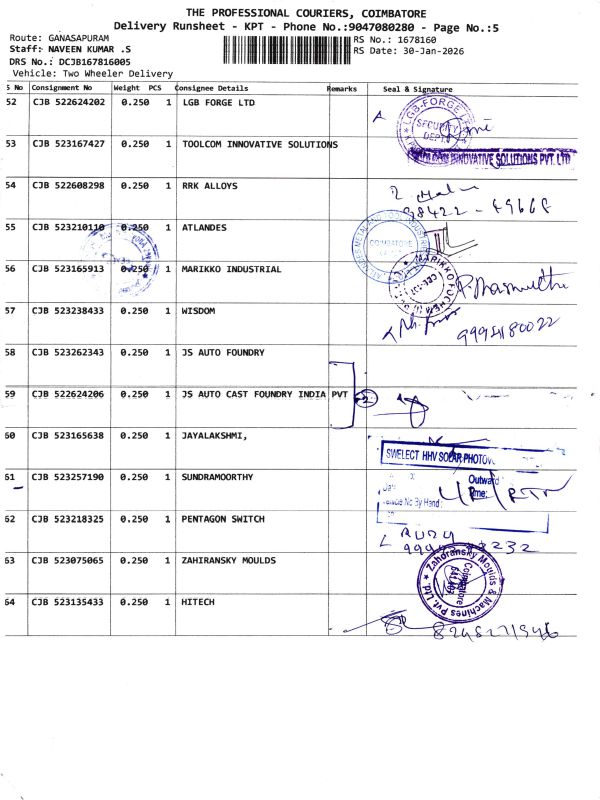 THE PROFESSIONAL COURIERS, COIMBATORE
Delivery Runsheet - KPT - Phone No.:9047080280 - Page No.:5
Route: GANASAPURAM
RS No.: 1678160
Staff: NAVEEN KUMAR .S
RS Date: 30-Jan-2026
DRS No.: DCJB167816005
Vehicle: Two Wheeler Delivery
S No Consignment No Weight PCS Consignee Details Remarks Seal & Signature
52 CJB 522624202 0.250 1 LGB FORGE LTD
LGB-FORGE
SECURITY
DEPT.
53 CJB 523167427 0.250 1 TOOLCOM INNOVATIVE SOLUTIONS
INNOVATIVE SOLUTIONS PVT. LTD
54 CJB 522608298 0.250 1 RRK ALLOYS
98422 - 49668
55 CJB 523210110 0.250 1 ATLANDES
COIMBATORE
56 CJB 523165913 0.250 1 MARIKKO INDUSTRIAL
MARIKKO
57 CJB 523238433 0.250 1 WISDOM
9994180022
58 CJB 523262343 0.250 1 JS AUTO FOUNDRY
59 CJB 522624206 0.250 1 JS AUTO CAST FOUNDRY INDIA PVT
2
60 CJB 523165638 0.250 1 JAYALAKSHMI,
SWELECT HHV SOLAR PHOTOV
61 CJB 523257190 0.250 1 SUNDRAMOORTHY
Outward
Time:
No By Hand:
62 CJB 523218325 0.250 1 PENTAGON SWITCH
63 CJB 523075065 0.250 1 ZAHIRANSKY MOULDS
Zahoransky Moulds & Machines Pvt. Ltd.
Coimbatore
64 CJB 523135433 0.250 1 HITECH